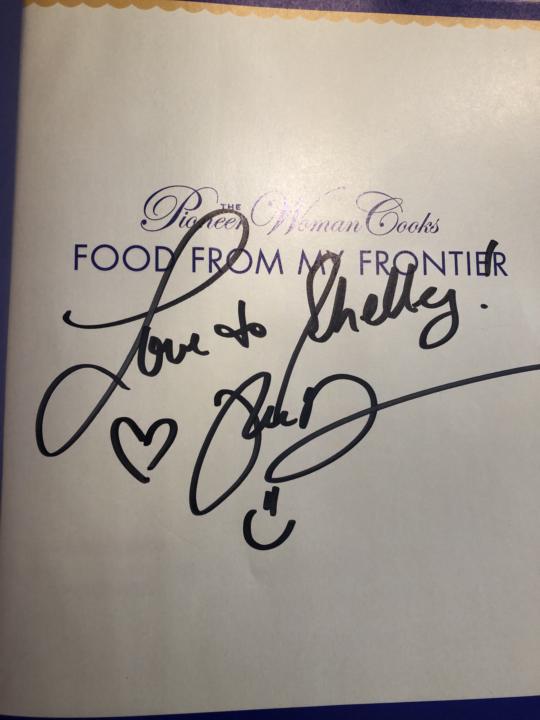 THE
Pioneer Woman Cooks
FOOD FROM MY FRONTIER
Love to Shelley!